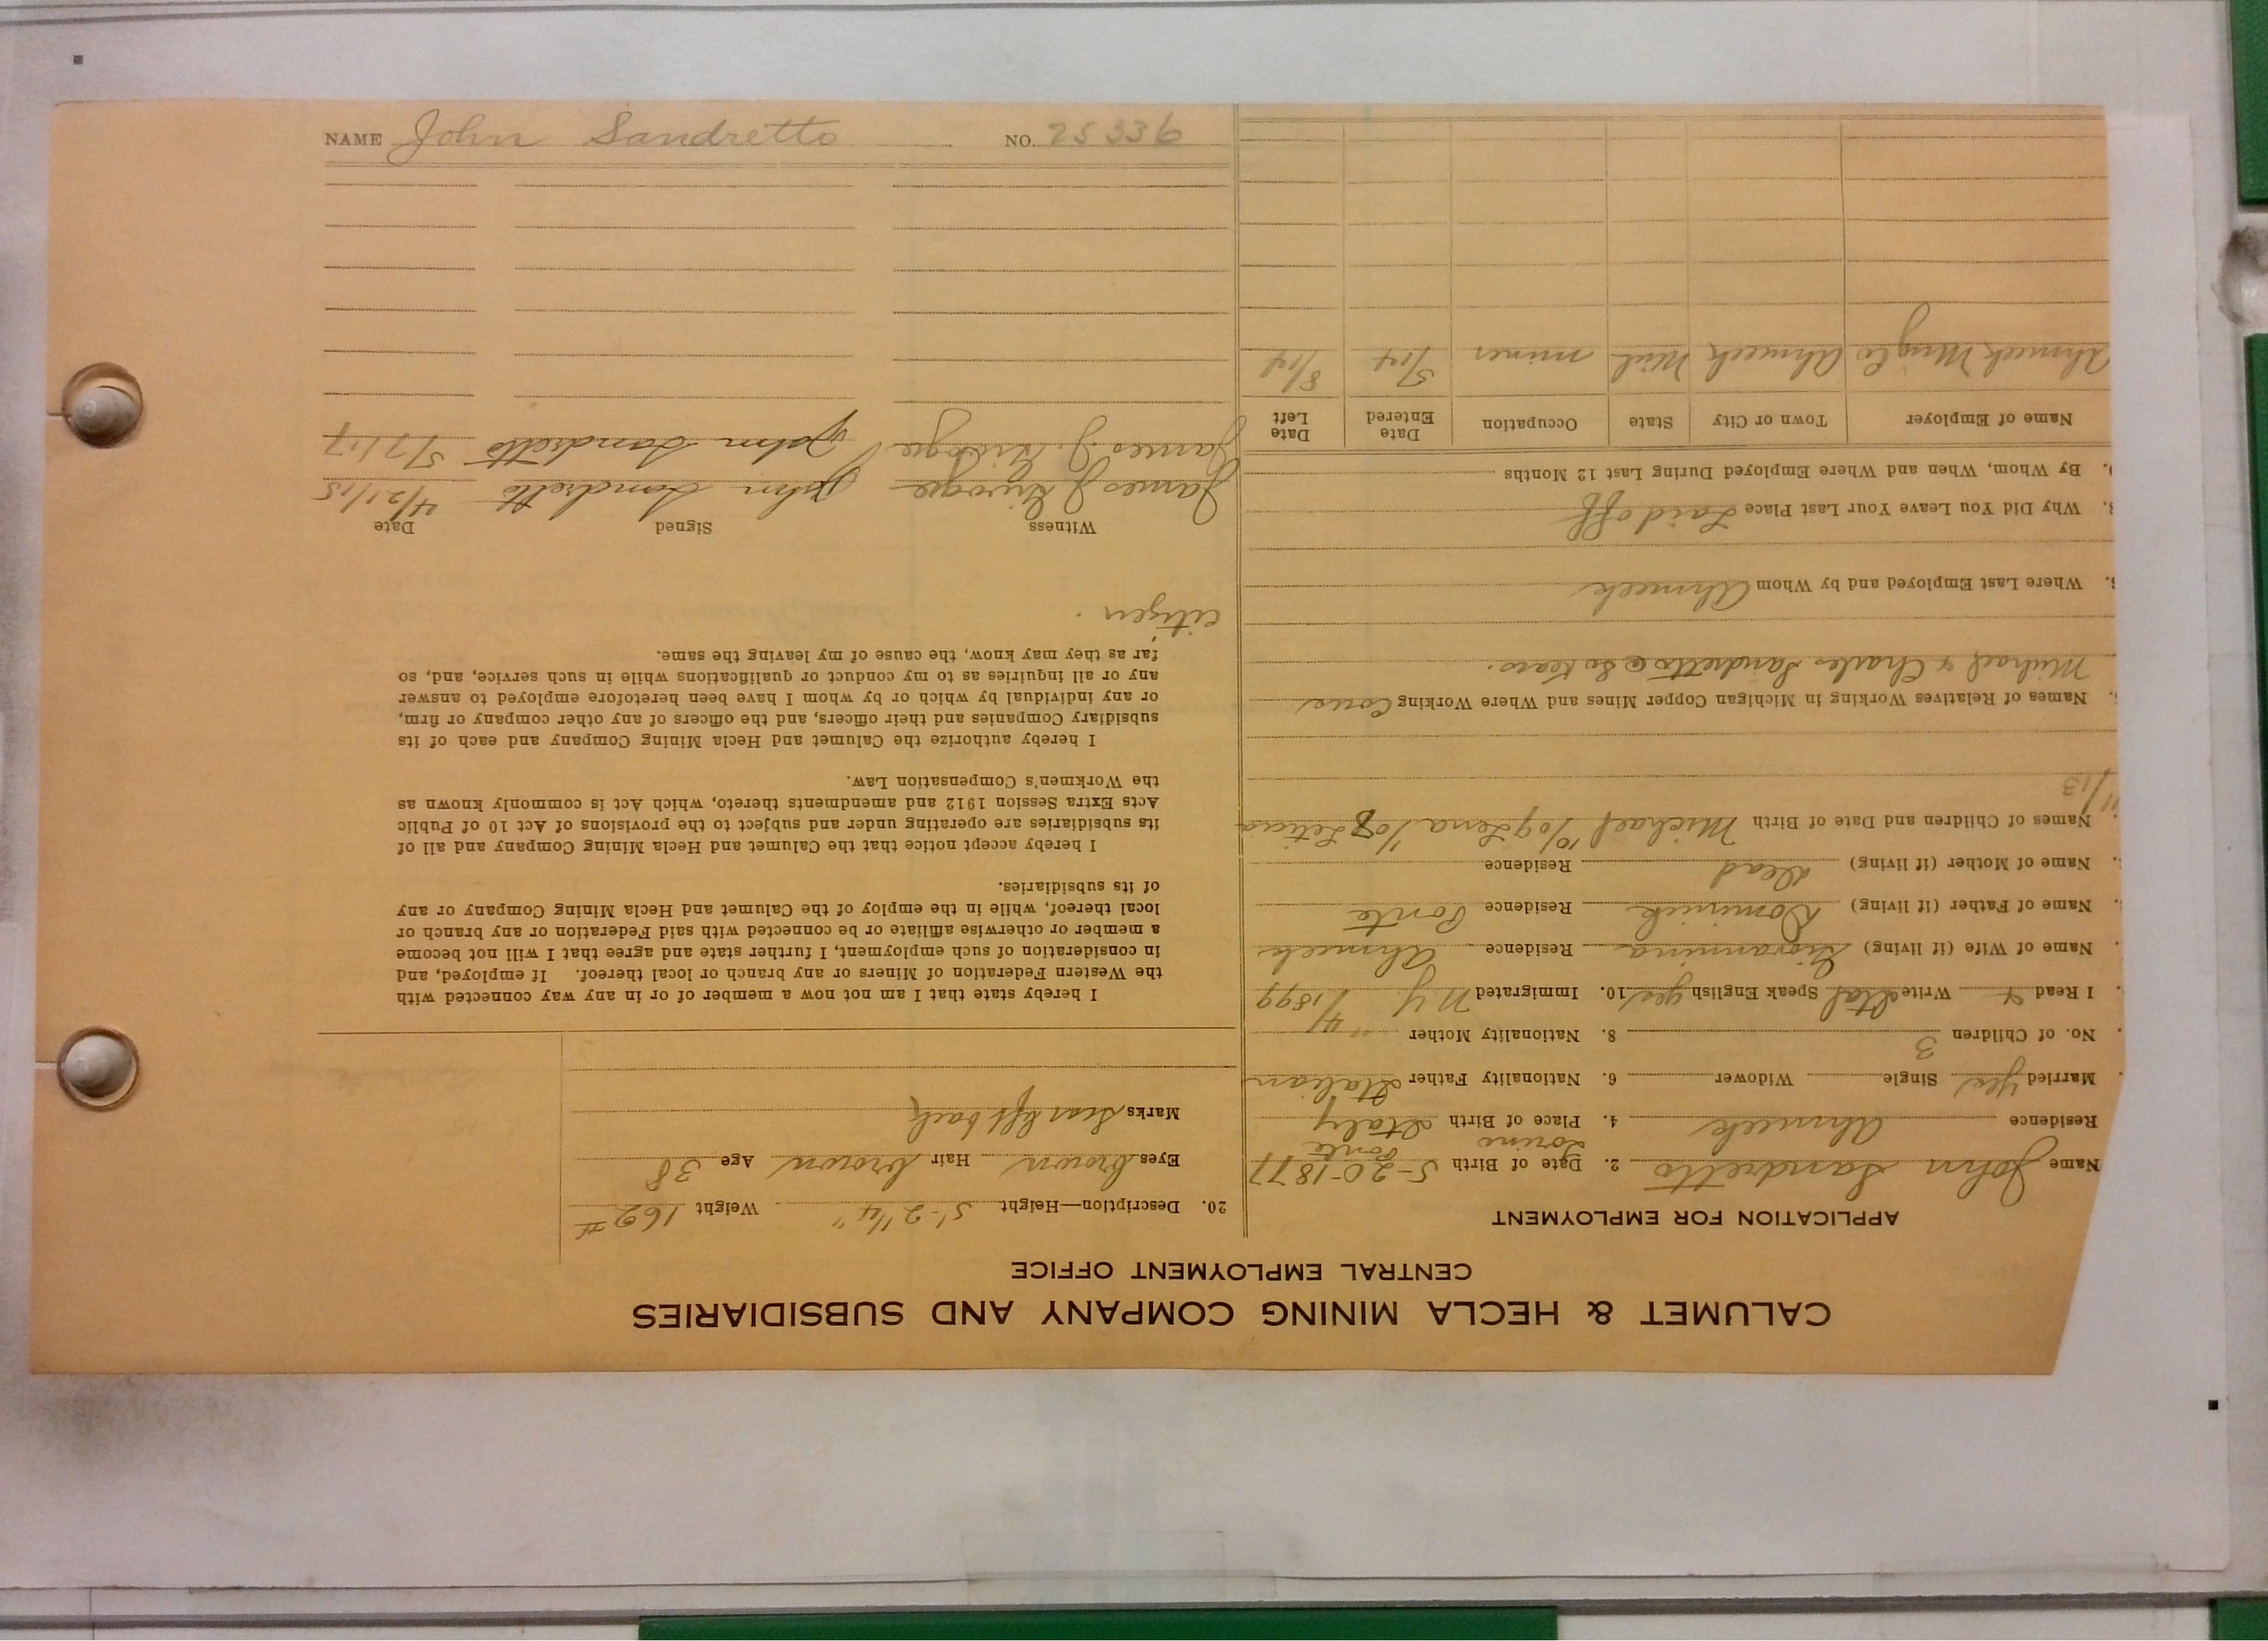 CALUMET & HECLA MINING COMPANY AND SUBSIDIARIES
CENTRAL EMPLOYMENT OFFICE
APPLICATION FOR EMPLOYMENT
Name John Sandretto 2. Date of Birth 5-20-1877
Residence Ahmeek 4. Place of Birth Italy Torino Ponte
Married yes Single Widower 6. Nationality Father Italian
No. of Children 3 8. Nationality Mother "
I Read & Write Ital Speak English yes 10. Immigrated N.Y. 4/1899
Name of Wife (if living) Giovannina Residence Ahmeek
Name of Father (if living) Dominick Residence Ponte
Name of Mother (if living) dead Residence
Names of Children and Date of Birth Michael 10/09 Lena 1/08 Leticia
11/13
Names of Relatives Working in Michigan Copper Mines and Where Working
Michael & Charles Sandretto @ So Kears.
Where Last Employed and by Whom Ahmeek
Why Did You Leave Your Last Place Laid off
By Whom, When and Where Employed During Last 12 Months
Name of Employer Town or City State Occupation Date Entered Date Left
Ahmeek Mng Co Ahmeek Mich miner 5/04 8/14
20. Description—Height 5'-2 1/4" Weight 162 #
Eyes brown Hair brown Age 38
Marks Scar left back
I hereby state that I am not now a member of or in any way connected with
the Western Federation of Miners or any branch or local thereof. If employed, and
in consideration of such employment, I further state and agree that I will not become
a member or otherwise affiliate or be connected with said Federation or any branch or
local thereof, while in the employ of the Calumet and Hecla Mining Company or any
of its subsidiaries.
I hereby accept notice that the Calumet and Hecla Mining Company and all of
its subsidiaries are operating under and subject to the provisions of Act 10 of Public
Acts Extra Session 1912 and amendments thereto, which Act is commonly known as
the Workmen's Compensation Law.
I hereby authorize the Calumet and Hecla Mining Company and each of its
subsidiary Companies and their officers, and the officers of any other company or firm,
or any individual by which or by whom I have been heretofore employed to answer
any or all inquiries as to my conduct or qualifications while in such service, and, so
far as they may know, the cause of my leaving the same.
citizen.
Witness Signed Date
James J. John Sandretto 4/21/15
James J. John Sandretto 5/7/17
NAME John Sandretto NO. 25336